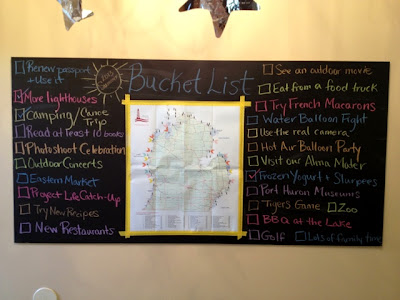 Bucket List
Renew passport
+ Use it
More lighthouses
Camping/Canoe
Trip
Read at least 10 books
Photo shoot Celebration
Outdoor Concerts
Eastern Market
Project Life Catch-Up
Try New Recipes
New Restaurants
See an outdoor movie
Eat from a food truck
Try French Macarons
Water Balloon Fight
Use the real camera
Hot Air Balloon Party
Visit our Alma Mater
Frozen Yogurt + Slurpees
Port Huron Museums
Tigers Game Zoo
BBQ at the Lake
Golf Lots of family fun